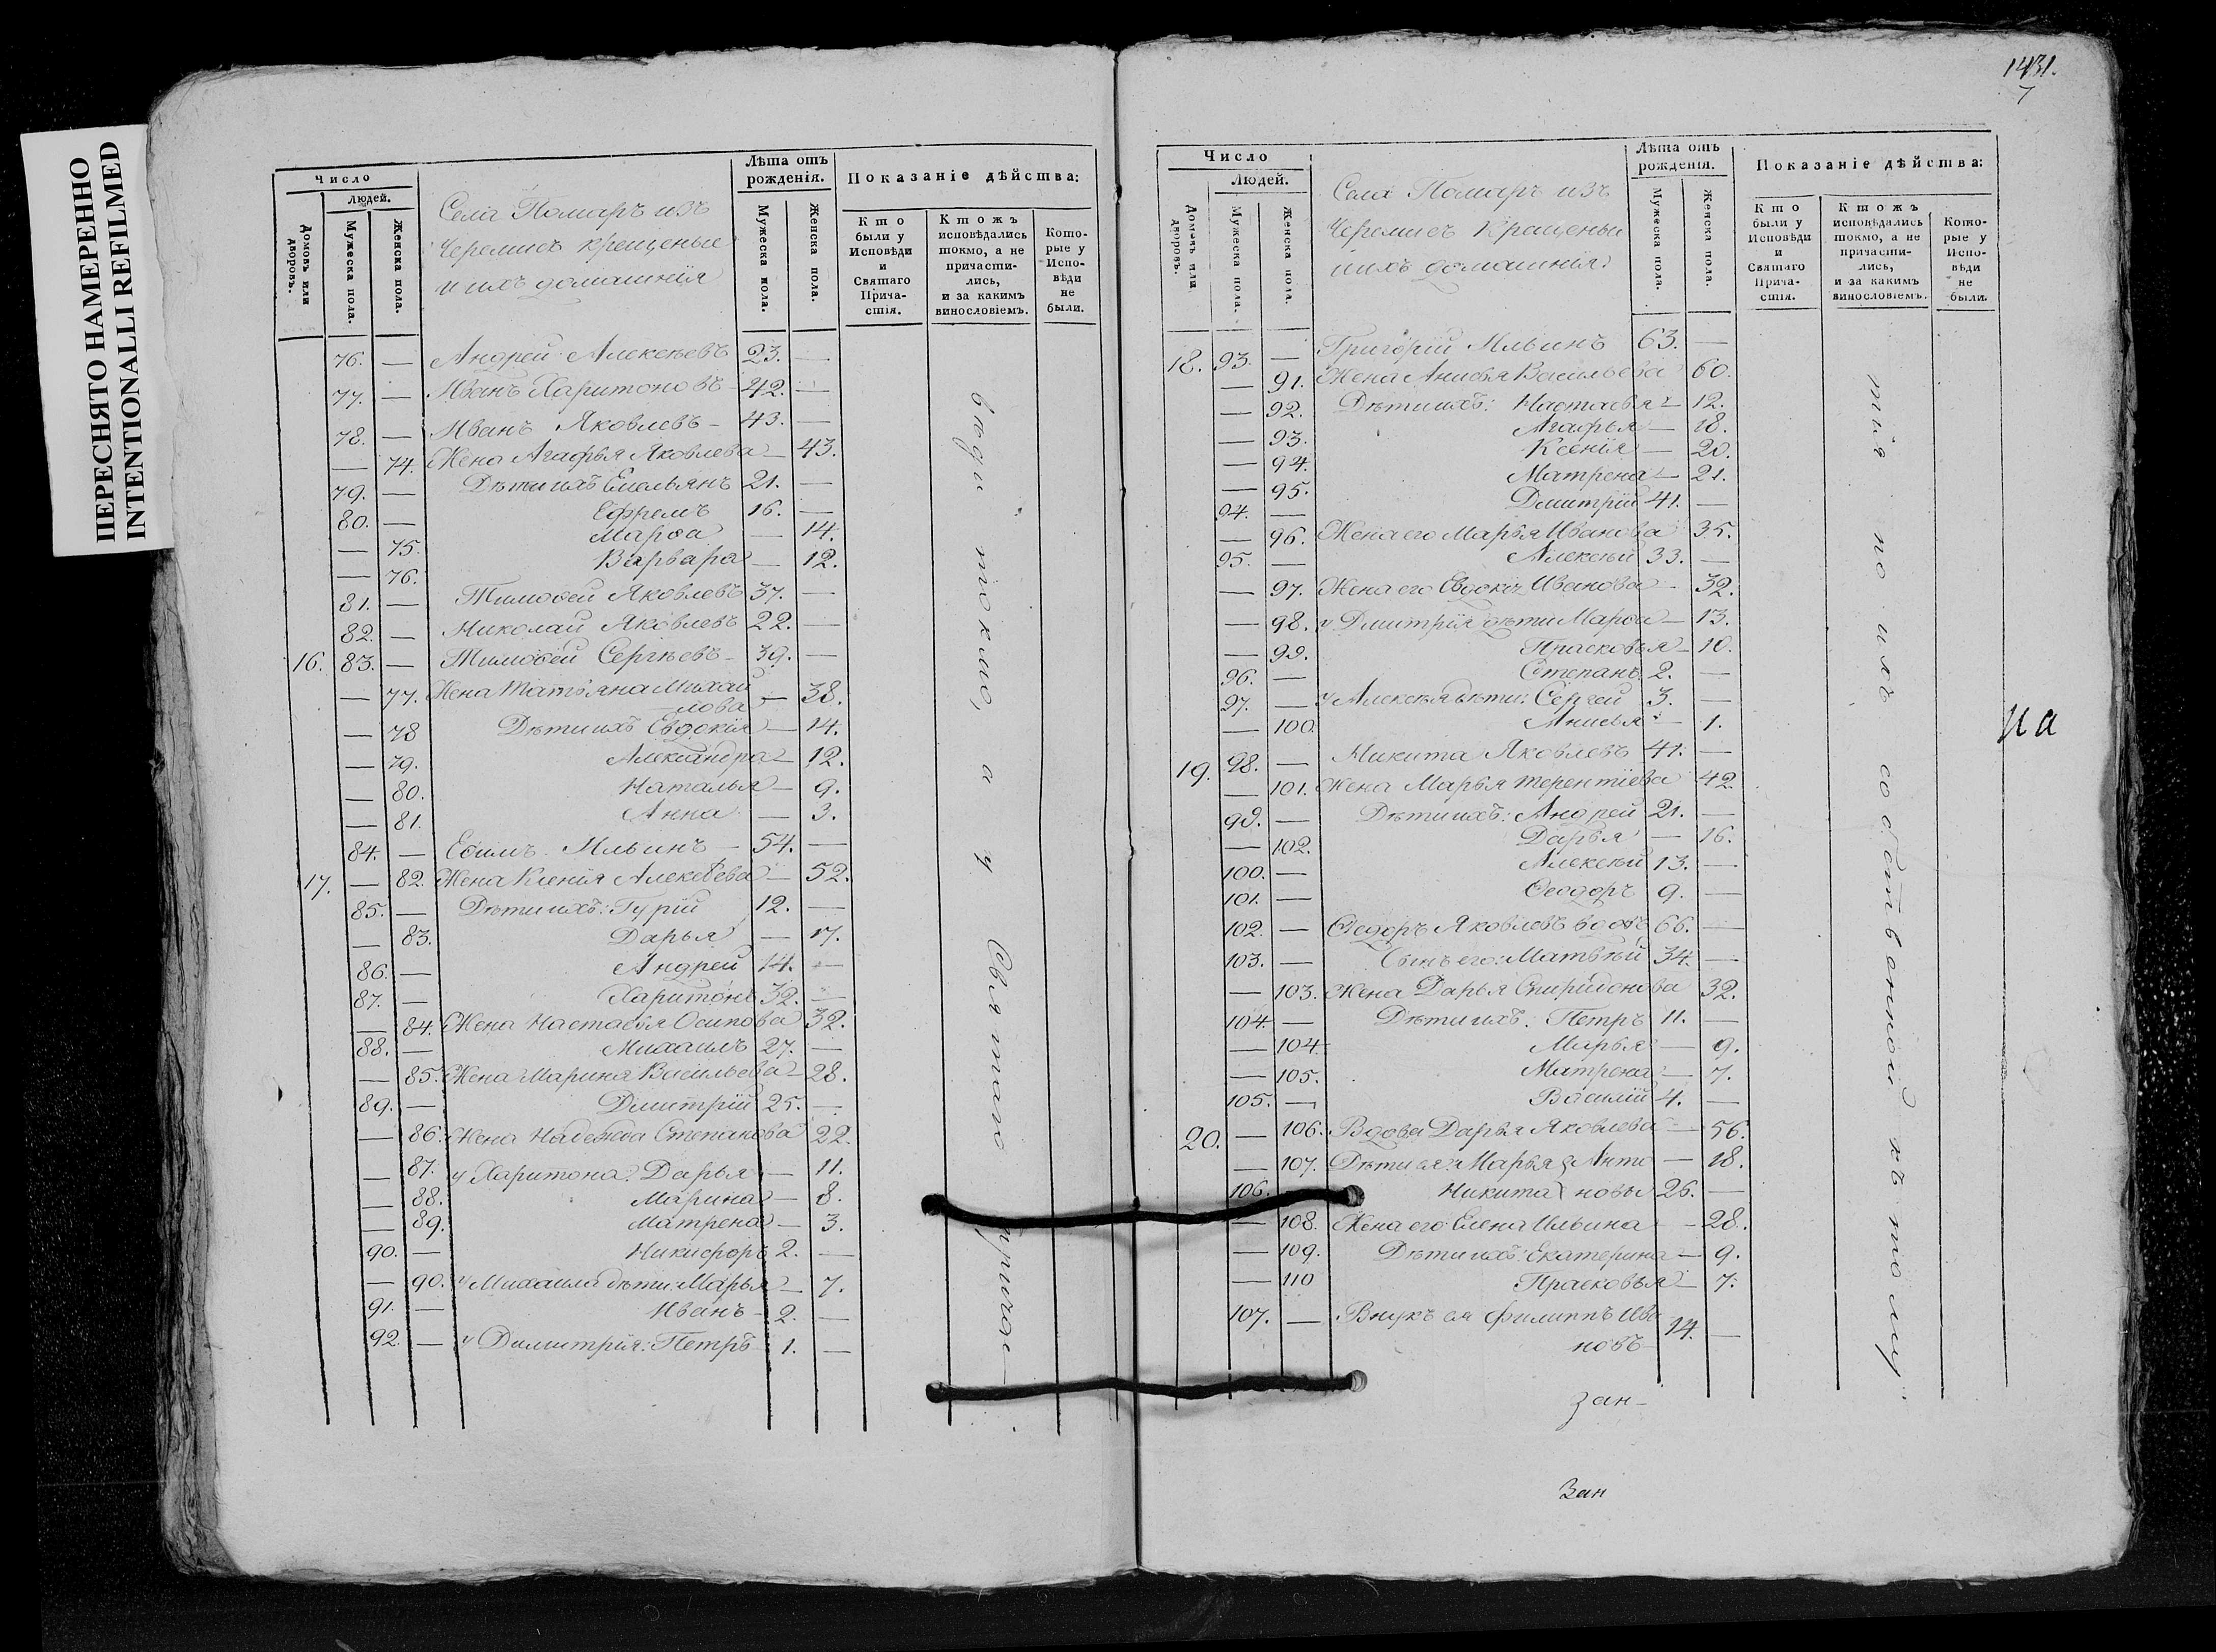 ПЕРЕСНЯТО НАМЕРЕННО
INTENTIONALLI REFILMED
Число
Людей.
Домовъ или дворовъ.
Мужеска пола.
Женска пола.
Села Помаръ изъ
Черемисъ крещеные
и ихъ домашнія
Лѣта отъ рожденія.
Мужеска пола.
Женска пола.
Показаніе дѣйства:
Кто были у Исповѣди и Святаго Причастія.
Ктожъ исповѣдались токмо, а не причастились, и за какимъ винословіемъ.
Которые у Исповѣди не были.
76. — Андрей Алексѣевъ 23. —
77. — Иванъ Харитоновъ 42. —
78. — Иванъ Яковлевъ 43. —
— 74. Жена Агафья Яковлева — 43.
79. — Дѣти ихъ Емельянъ 21. —
80. — Ефремъ 16. —
— 75. Марѳа — 14.
— 76. Варвара — 12.
81. — Тимоѳей Яковлевъ 37. —
82. — Николай Яковлевъ 22. —
16. 83. — Тимоѳей Сергѣевъ 39. —
— 77. Жена Татьяна Михай
лова — 38.
— 78 Дѣти ихъ Евдокія — 14.
— 79. Александра — 12.
— 80. Наталья — 9.
— 81. Анна — 3.
84. — Ефимъ Ильинъ — 54. —
17. — 82. Жена Ксенія Алексѣева — 52.
85. — Дѣти ихъ: Гурій 12. —
— 83. Дарья — 17.
86. — Андрей 14. —
87. — Харитонъ 32. —
— 84. Жена Настасья Осипова 32.
88. — Михаилъ 27. —
— 85. Жена Марина Васильева — 28.
89. — Дмитрій 25. —
— 86. Жена Надежда Степанова 22.
— 87. у Харитона: Дарья — 11.
— 88. Марина — 8.
— 89. Матрена — 3.
90. — Никифоръ 2. —
— 90. у Михаила дѣти: Марья — 7.
91. — Иванъ — 2. —
92. — у Димитрія: Петръ 1. —
токмо, а у Святаго причас—
1431.
7
Число
Людей.
Домовъ или дворовъ.
Мужеска пола.
Женска пола.
Села Помаръ изъ
Черемисъ Крещеные
и ихъ домашнія:
Лѣта отъ рожденія.
Мужеска пола.
Женска пола.
Показаніе дѣйства:
Кто были у Исповѣди и Святаго Причастія.
Ктожъ исповѣдались токмо, а не причастились, и за какимъ винословіемъ.
Которые у Исповѣди не были.
18. 93. — Григорій Ильинъ 63. —
— 91. Жена Анисья Васильева 60.
— 92. Дѣти ихъ: Настасья — 12.
— 93. Агафья — 18.
— 94. Ксенія — 20.
— 95. Матрена — 21.
94. — Дмитрій 41. —
— 96. Жена его Марья Иванова 35.
95. — Алексѣй 33. —
— 97. Жена его Евдокія Иванова — 32.
— 98. у Дмитрія дѣти Марѳа — 13.
— 99. Прасковья — 10.
96. — Степанъ 2. —
97. — у Алексѣя дѣти: Сергей 3. —
— 100. Анисья — 1.
19. 98. — Никита Яковлевъ 41. —
— 101. Жена Марья Терентіева 42.
99. — Дѣти ихъ: Андрей 21. —
— 102. Дарья — 16.
100. — Алексѣй 13. —
101. — Ѳеодоръ 9. —
102. — Ѳедоръ Яковлевъ вдовъ 66. —
103. — Сынъ его: Матвѣй 34. —
— 103. Жена Дарья Спиридонова 32.
104. — Дѣти ихъ: Петръ 11. —
— 104. Марья — 9.
— 105. Матрена — 7.
105. — Василій 4. —
20. — 106. Вдова Дарья Яковлева — 56.
— 107. Дѣти ея: Марья Анто — 18.
106. Никита новы 26. —
— 108. Жена его Елена Ильина — 28.
— 109. Дѣти ихъ: Екатерина — 9.
— 110 Прасковья — 7.
107. — Внукъ ея Филиппъ Ива
новъ 14. —
тія по ихъ собственной къ тому
на
зан—
Зан